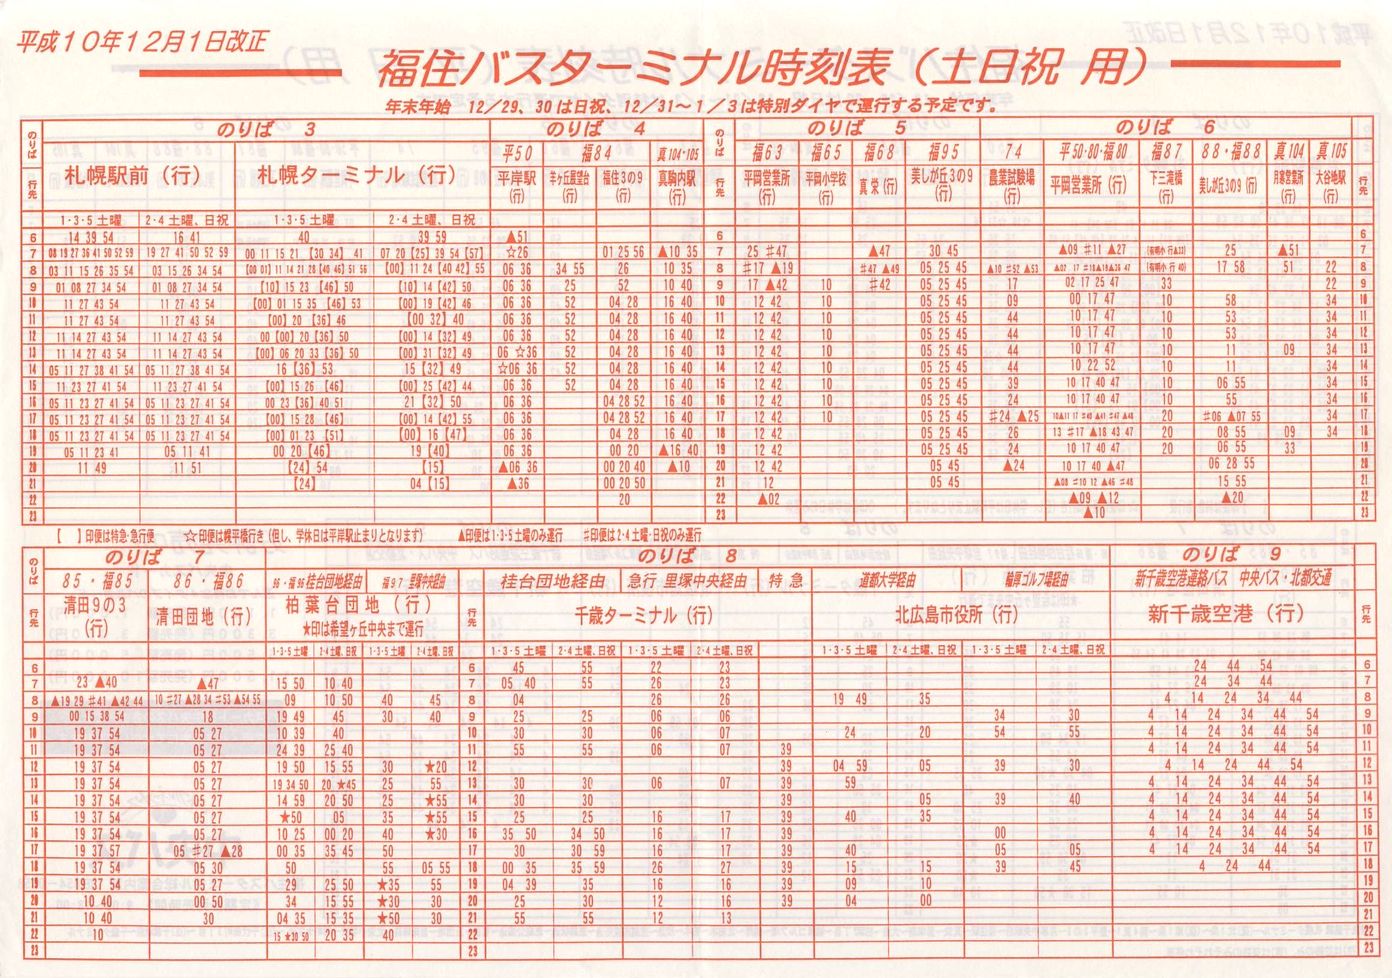 平成10年12月1日改正
福住バスターミナル時刻表（土日祝 用）
年末年始 12/29、30は日祝、12/31～1/3は特別ダイヤで運行する予定です。
のりば のりば 3 のりば 4 のりば のりば 5 のりば 6 のりば
平50 福84 真104・105 福63 福65 福68 福95 74 平50・80・福80 福87 88・福88 真104 真105
行先 札幌駅前（行） 札幌ターミナル（行） 平岸駅（行） 羊ヶ丘展望台（行） 福住3の9（行） 真駒内駅（行） 行先 平岡営業所（行） 平岡小学校（行） 真栄（行） 美しが丘3の9（行） 農業試験場（行） 平岡営業所（行） 下三滝橋（行） 美しが丘3の9（行） 月寒営業所（行） 大谷地駅（行） 行先
1・3・5 土曜 2・4 土曜、日祝 1・3・5 土曜 2・4 土曜、日祝
6 14 39 54 16 41 40 39 59 ▲51 6 6
7 08 19 27 36 41 50 52 59 19 27 41 50 52 59 00 11 15 21 【30 34】 41 07 20 【25】 39 54 【57】 ☆26 01 25 56 ▲10 35 7 25 ♯47 ▲47 30 45 ▲09 ♯11 ▲27 25 ▲51 7
8 03 11 15 26 35 54 03 15 26 34 54 【00 01】 11 14 21 28 【40 46】 51 56 【00】 11 24 【40 42】 55 06 36 34 55 26 10 35 8 ♯17 ▲19 ♯47 ▲49 05 25 45 ▲10 ♯52 ▲53 17 58 51 22 8
9 01 08 27 34 54 01 08 27 34 54 【10】 15 23 【46】 50 【10】 14 【42】 50 06 36 25 52 10 40 9 17 ▲42 10 ♯42 05 25 45 17 02 17 25 47 33 22 9
10 11 27 43 54 11 27 43 54 【00】 01 15 35 【46】 53 【00】 19 【42】 46 06 36 52 04 28 16 40 10 12 42 10 05 25 45 09 00 17 47 58 34 10
11 11 27 43 54 11 27 43 54 【00】 20 【36】 46 【00 32】 40 06 36 52 04 28 16 40 11 12 42 10 05 25 45 44 10 17 47 53 34 11
12 11 14 27 43 54 11 14 27 43 54 00 【00】 20 【36】 50 【00】 14 【32】 49 06 36 52 04 28 16 40 12 12 42 10 05 25 45 44 10 17 47 53 34 12
13 11 14 27 43 54 11 14 27 43 54 【00】 06 20 33 【36】 50 【00】 31 【32】 49 06 ☆36 52 04 28 16 40 13 12 42 10 05 25 45 44 10 17 47 11 09 34 13
14 05 11 27 38 41 54 05 11 27 38 41 54 16 【36】 53 15 【32】 49 ☆06 36 52 04 28 16 40 14 12 42 10 05 25 45 44 10 22 52 11 34 14
15 11 23 27 41 54 11 23 27 41 54 【00】 15 26 【46】 【00】 25 【42】 44 06 36 52 04 28 16 40 15 12 42 10 05 25 45 39 10 17 40 47 06 55 34 15
16 05 11 23 27 41 54 05 11 23 27 41 54 00 23 【36】 40 51 21 【32】 50 06 36 04 28 52 16 40 16 12 42 10 05 25 45 24 10 17 40 47 20 17 55 34 16
17 05 11 23 27 41 54 05 11 23 27 41 54 【00】 15 28 【46】 【00】 14 【42】 55 06 36 04 28 52 16 40 17 12 42 10 05 25 45 ♯24 ▲25 20 ♯06 ▲07 55 34 17
18 05 11 23 27 41 54 05 11 23 27 41 54 【00】 01 23 【51】 【00】 16 【47】 06 36 04 28 16 40 18 12 42 05 25 45 26 13 ♯17 ▲18 43 47 20 08 55 09 34 18
19 05 11 23 41 05 11 41 00 20 【46】 19 【40】 06 36 00 20 ▲16 40 19 12 42 05 25 45 24 10 17 40 47 20 06 55 33 19
20 11 49 11 51 【24】 54 【15】 ▲06 36 00 20 40 ▲10 20 12 42 05 45 ▲24 10 17 40 ▲47 06 28 55 20
21 【24】 04 【15】 ▲36 00 20 50 21 12 05 45 15 55 21
22 20 22 ▲02 ▲09 ▲12 ▲20 22
23 23 ▲10 23
【 】印便は特急・急行便 ☆印便は幌平橋行き（但し、学休日は平岸駅止まりとなります） ▲印便は1・3・5土曜のみ運行 ♯印便は2・4土曜・日祝のみ運行
のりば のりば 7 のりば のりば 8 のりば 9 のりば
85・福85 86・福86 96・福96 桂台団地経由 福97・里塚中央経由 桂台団地経由 急行・里塚中央経由 特急 道都大学経由 輪厚ゴルフ場経由 新千歳空港連絡バス 中央バス・北都交通
行先 清田9の3（行） 清田団地（行） 柏葉台団地（行） ★印は希望ヶ丘中央まで運行 行先 千歳ターミナル（行） 北広島市役所（行） 新千歳空港（行） 行先
1・3・5 土曜 2・4土曜、日祝 1・3・5 土曜 2・4土曜、日祝 1・3・5 土曜 2・4 土曜、日祝 1・3・5 土曜 2・4 土曜、日祝 1・3・5 土曜 2・4土曜、日祝 1・3・5 土曜 2・4 土曜、日祝
6 6 45 55 22 23 24 44 54 6
7 23 ▲40 ▲47 15 50 10 40 7 05 40 55 26 23 24 34 44 7
8 ▲19 29 ♯41 ▲42 44 10 ♯27 ▲28 34 ♯53 ▲54 55 09 10 50 40 45 8 04 26 26 19 49 35 4 14 24 34 44 8
9 00 15 38 54 18 19 49 45 30 40 9 25 25 06 06 34 30 4 14 24 34 44 54 9
10 19 37 54 05 27 10 39 40 10 30 30 06 07 24 20 54 55 4 14 24 34 44 54 10
11 19 37 54 05 27 24 39 25 40 11 55 55 06 07 39 4 14 24 34 44 54 11
12 19 37 54 05 27 19 50 15 55 30 ★20 12 39 04 59 05 39 30 4 14 24 44 54 12
13 19 37 54 05 27 19 34 50 20 ★45 25 55 13 30 30 06 07 39 59 4 14 24 34 44 54 13
14 19 37 54 05 27 14 59 20 50 25 ★55 14 30 30 39 05 39 40 4 14 24 34 44 54 14
15 19 37 54 05 27 ★50 05 35 ★55 15 25 25 16 17 39 40 35 4 14 24 34 44 54 15
16 19 37 54 05 27 10 25 00 20 40 ★30 16 35 50 34 50 16 17 39 00 4 14 24 34 44 54 16
17 19 37 57 05 ♯27 ▲28 00 35 35 45 50 17 30 30 59 16 17 39 40 05 05 4 14 24 34 44 54 17
18 19 37 54 05 30 50 55 05 55 18 00 35 35 59 26 27 39 15 15 39 45 4 24 44 18
19 19 37 54 05 27 29 25 50 ★35 55 19 04 39 35 16 16 39 09 10 19
20 10 40 00 50 34 15 55 ★30 30 20 25 30 12 16 39 04 00 20
21 10 40 30 04 35 15 35 ★50 30 21 55 55 12 13 21
22 10 15 ★30 50 20 35 40 22 22
23 23 23